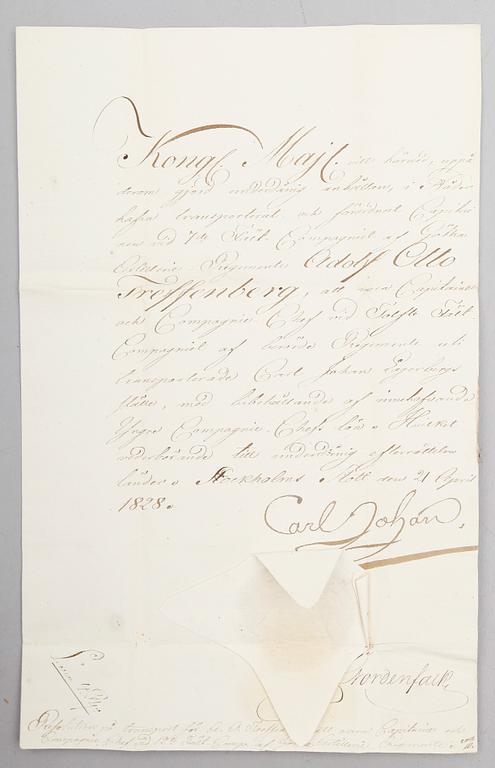 Kongl. Majt. vill härmed, uppå
derom gjord underdånig anhållan, i Nåder
hafva transporterat och förordnat Capitai-
nen vid 7de Fält-Compagniet af Götha
Artillerie-Regemente Adolf Otto
Treffenberg, att vara Capitaine
och Compagnie-Chef vid Tolfte Fält
Compagniet af berörde Regemente uti
transporterade Carl Johan Lagerbergs
ställe, med bibehållande af innehafvande
Yngre Compagnie-Chefs lön. Hvilket
vederbörande till underdånig efterrättelse
länder. Stockholms Slott den 21 April
1828.
Carl Johan.
Nordenfalk
Resolution på transport för
Compagnie Chef vid 12te Fält Comp. af Regemente